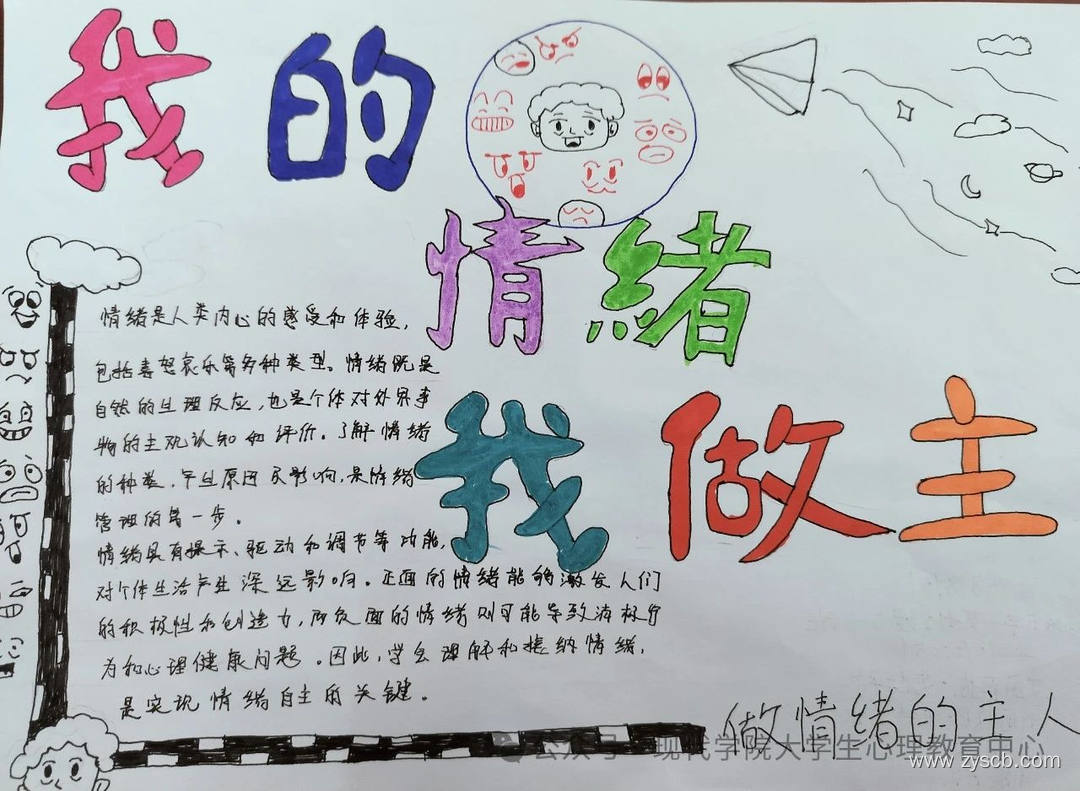 我的
情緒
我做主
情绪是人类内心的感受和体验,
包括喜怒哀乐等多种类型。情绪既是
自然的生理反应,也是个体对外界事
物的主观认知和评价。了解情绪
的种类、产生原因及影响,是情绪
管理的第一步。
情绪具有提示、驱动和调节等功能,
对个体生活产生深远影响。正面的情绪能够激发人们
的积极性和创造力,而负面的情绪则可能导致消极行
为和心理健康问题。因此,学会理解和接纳情绪,
是实现情绪自主的关键。
做情绪的主人
公众号·现代学院大学生心理教育中心
www.zyscb.com